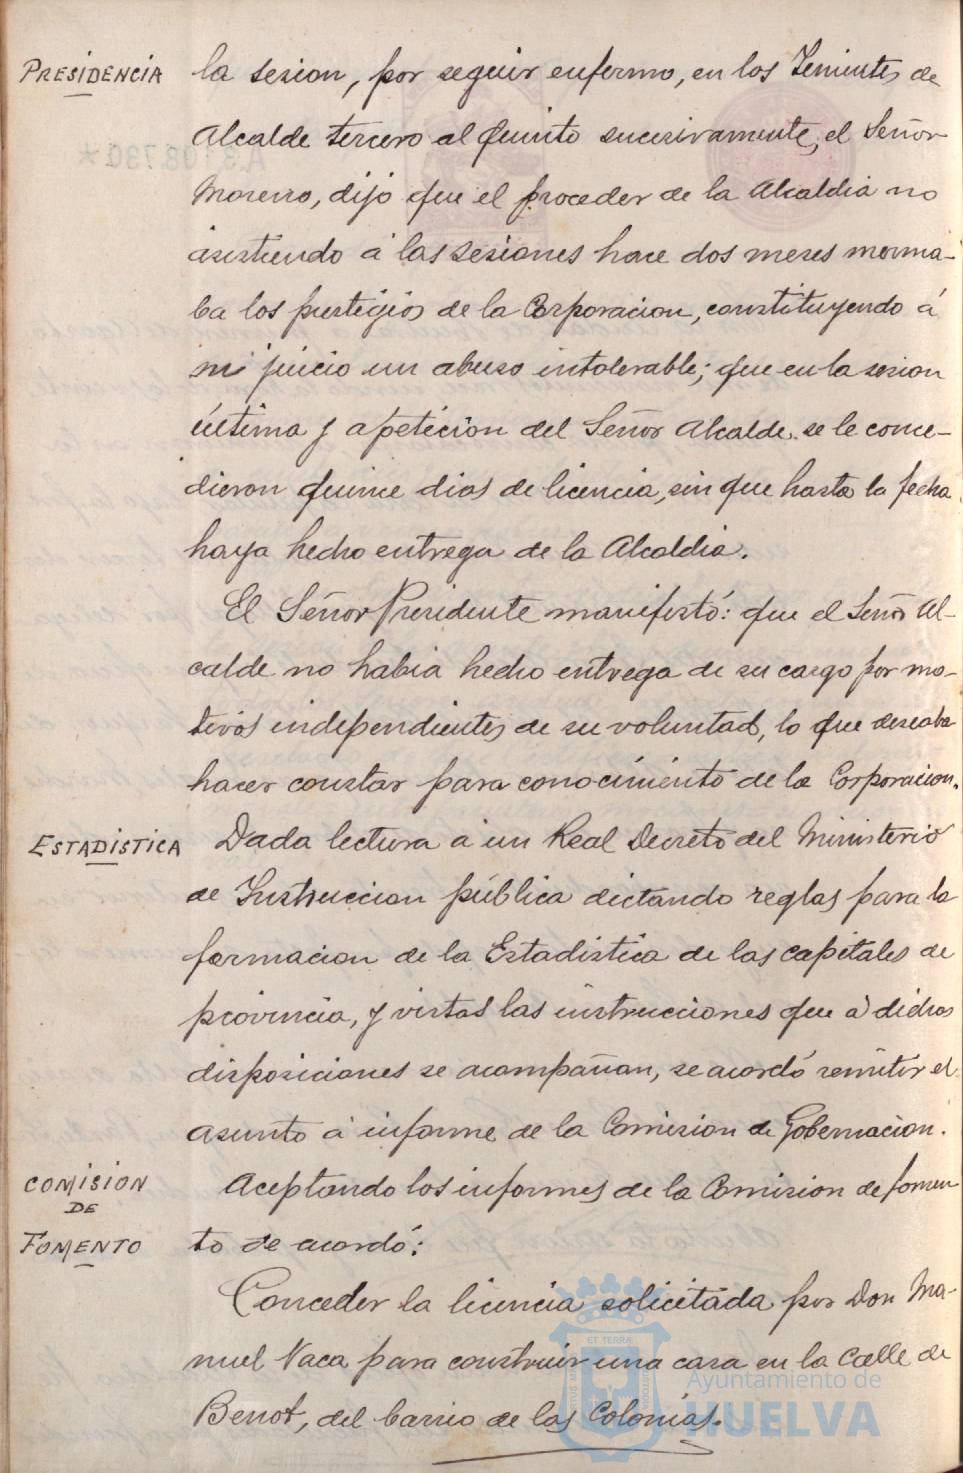 PRESIDENCIA
la sesion, por seguir enfermo, en los Tenientes de
Alcalde tercero al quinto sucesivamente, el Señor
Moreno, dijo que el proceder de la Alcaldia no
asistiendo á las sesiones hace dos meses merma-
ba los prestigios de la Corporacion, constituyendo á
mi juicio un abuso intolerable; que en la sesion
última y a peticion del Señor Alcalde se le conce-
dieron quince dias de licencia, sin que hasta la fecha
haya hecho entrega de la Alcaldia.
El Señor Presidente manifestó: que el Señor Al-
calde no habia hecho entrega de su cargo por mo-
tivos independientes de su voluntad, lo que deseaba
hacer constar para conocimiento de la Corporacion.
ESTADISTICA
Dada lectura á un Real Decreto del Ministerio
de Instruccion pública dictando reglas para la
formacion de la Estadistica de las capitales de
provincia, y vistas las instrucciones que á dichas
disposiciones se acompañan, se acordó remitir el
asunto á informe de la Comision de Gobernacion.
COMISION
DE
FOMENTO
Aceptando los informes de la Comision de fomen
to de acordó:
Conceder la licencia solicitada por Don Ma-
nuel Vaca para construir una casa en la Calle de
Benot, del barrio de las Colonias.
ET TERRÆ
Ayuntamiento de
HUELVA